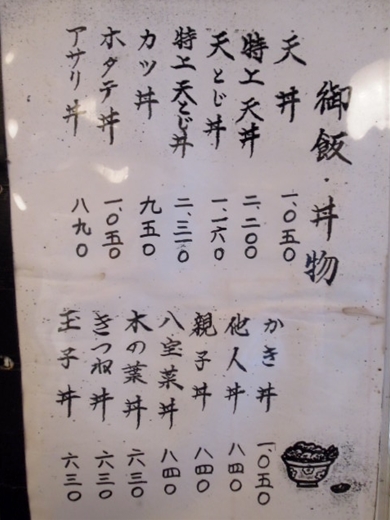 御飯・丼物
天丼 一、〇五〇
特上天丼 二、二〇〇
天とじ丼 一、一六〇
特上天とじ丼 二、三一〇
カツ丼 九五〇
ホタテ丼 一、〇五〇
アサリ丼 八九〇
かき丼 一、〇五〇
他人丼 八四〇
親子丼 八四〇
八宝菜丼 八四〇
木の葉丼 六三〇
きつね丼 六三〇
玉子丼 六三〇